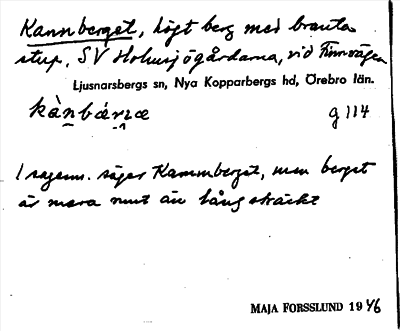 Kannberget, högt berg med branta
stup, SV Hohusjögårdarna, vid Finnvägen
Ljusnarsbergs sn, Nya Kopparbergs hd, Örebro län.
g 114
I sagesm. säger Kammberget, men berget
är mera runt än långsträckt
MAJA FORSSLUND 1946